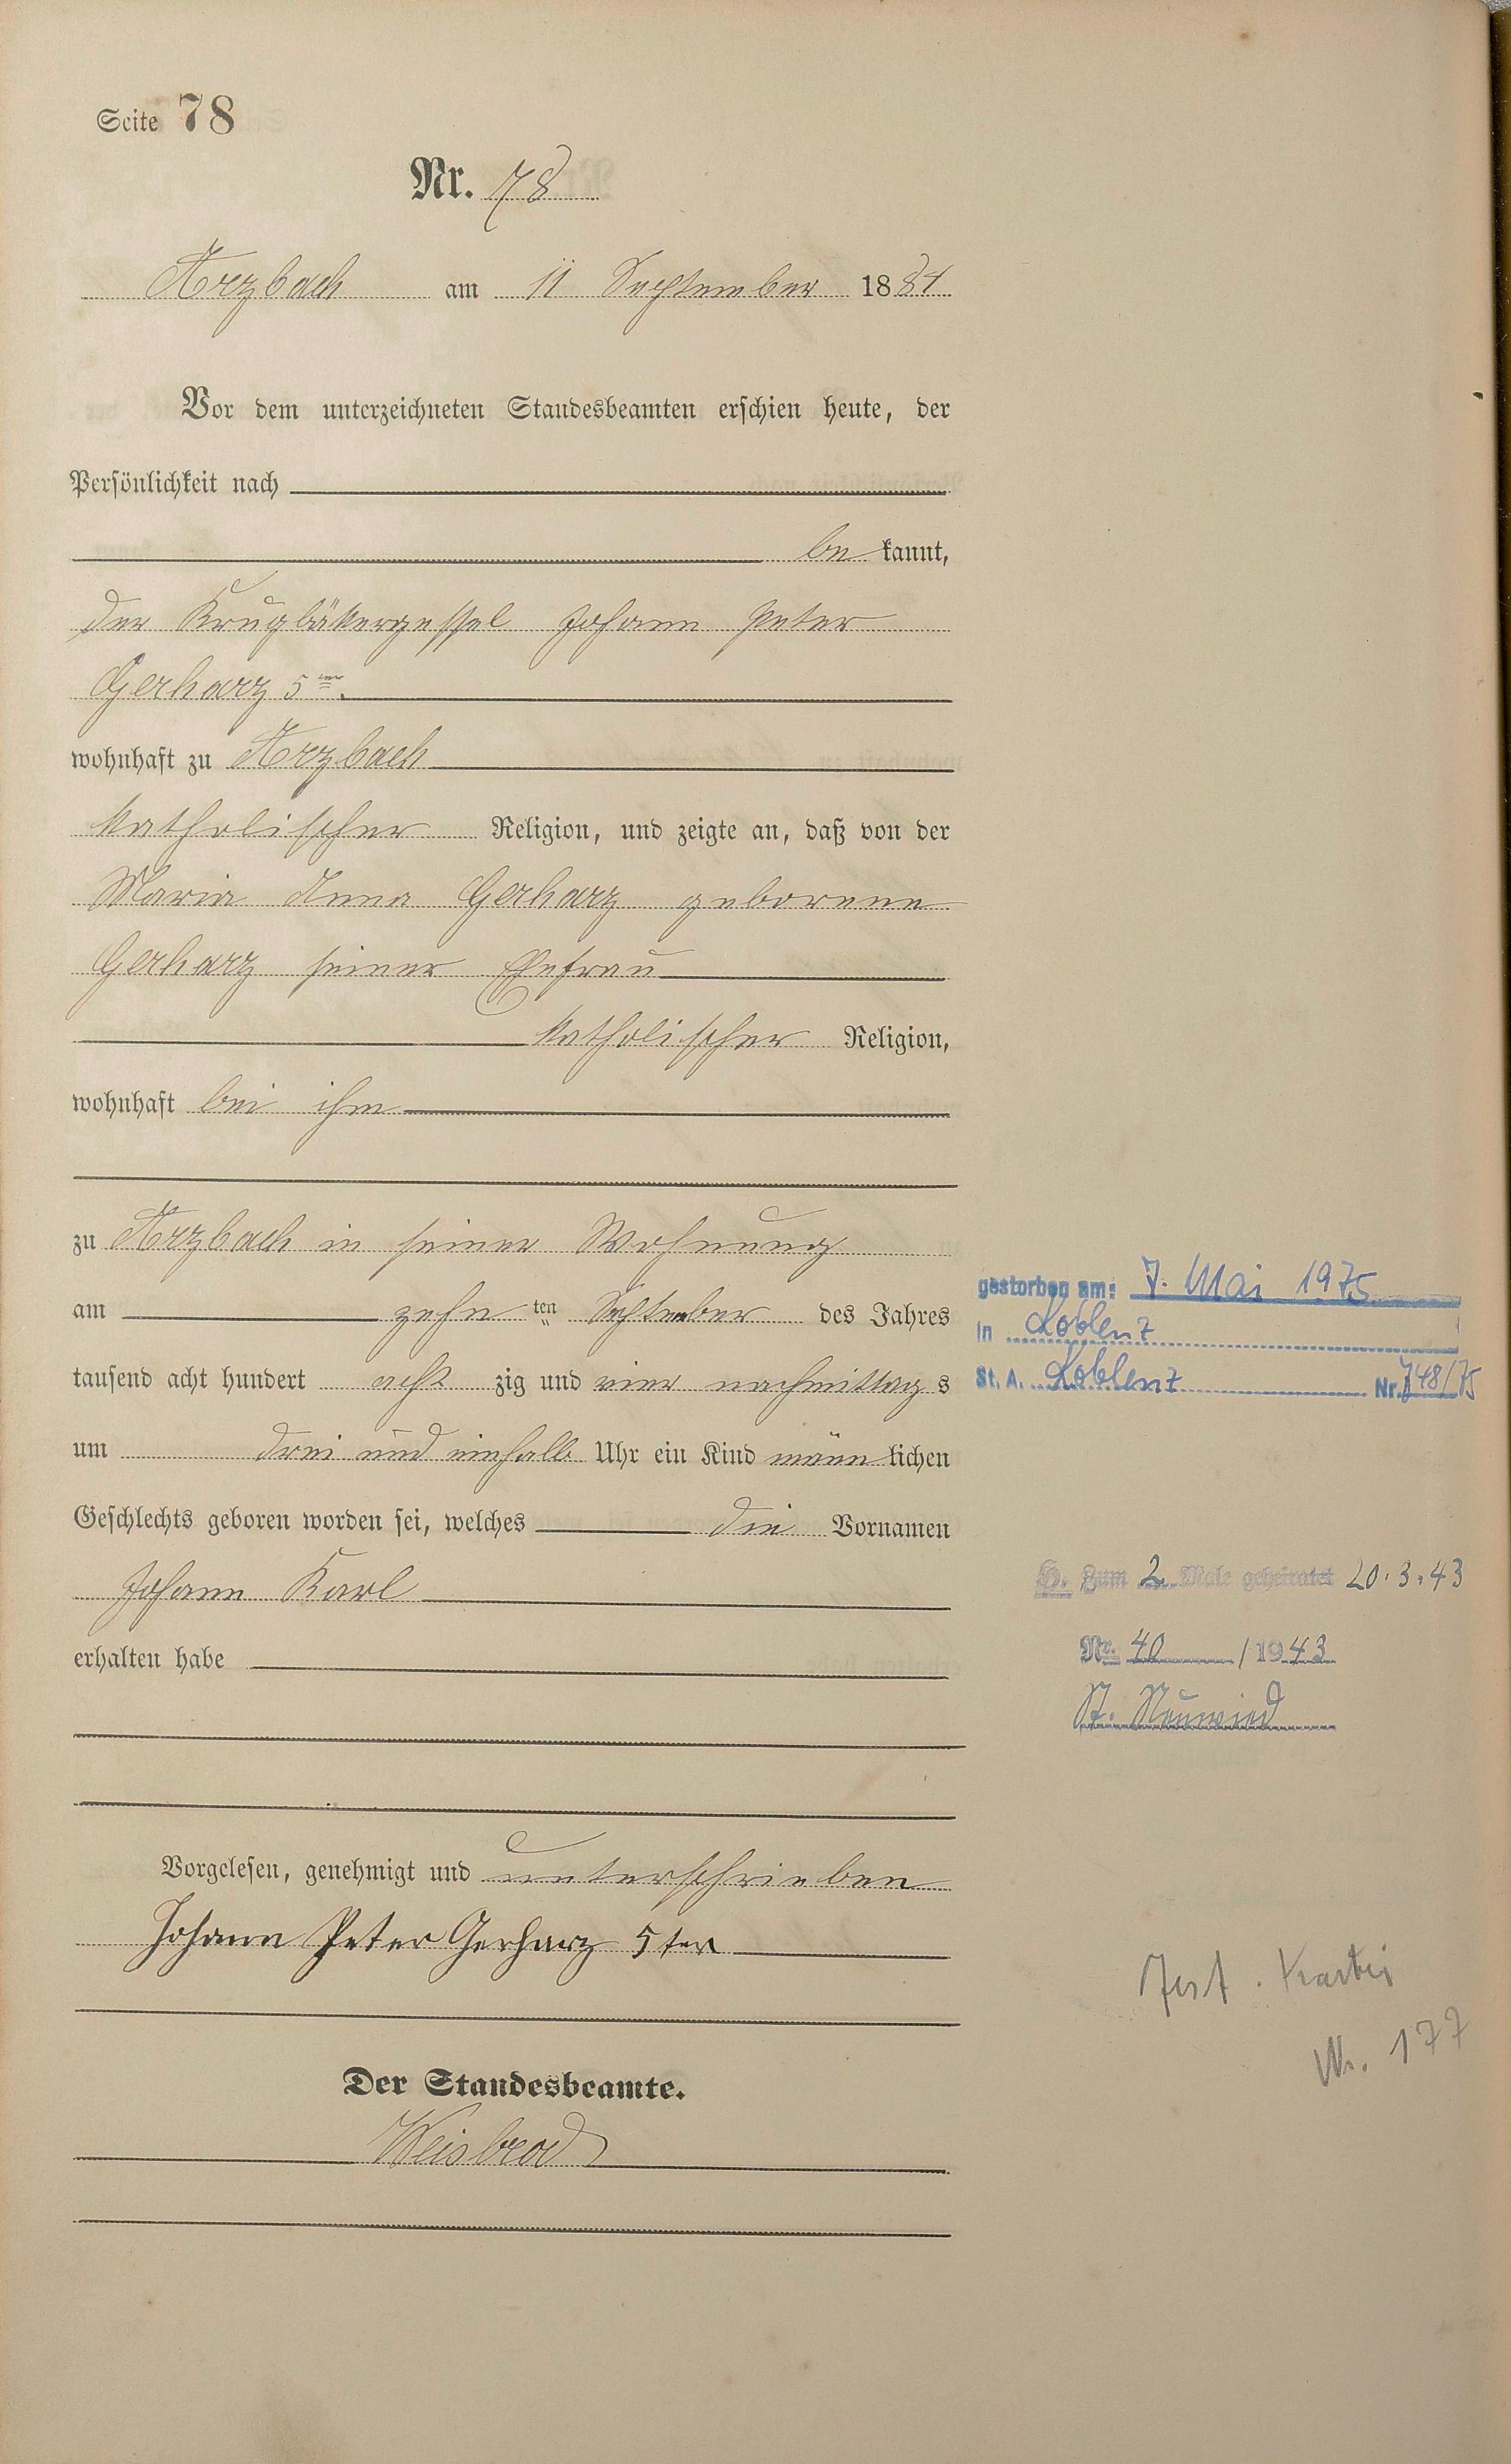 Seite 78
Nr. 78
Arzbach am 11 September 1884
Vor dem unterzeichneten Standesbeamten erschien heute, der
Persönlichkeit nach
be kannt,
der Krugbäkergessel Johann Peter
Gerharz 5ter
wohnhaft zu Arzbach
katholischer Religion, und zeigte an, daß von der
Maria Anna Gerharz geborene
Gerharz seiner Ehefrau
katholischer Religion,
wohnhaft bei ihm
zu Arzbach in seiner Wohnung
am zehn ten September des Jahres
tausend acht hundert acht zig und vier nachmittag s
um drei und einhalb Uhr ein Kind männ lichen
Geschlechts geboren worden sei, welches die Vornamen
Johann Karl
erhalten habe
Vorgelesen, genehmigt und unterschrieben
Johann Peter Gerharz 5ter
Der Standesbeamte.
Weisbrod
gestorben am: 7. Mai 1975
in Koblenz
St. A. Koblenz Nr. 748/75
H. Zum 2. Male geheiratet 20.3.43
Nr. 40 / 1943
St. Neuwied
Test. Kartei
Nr. 177